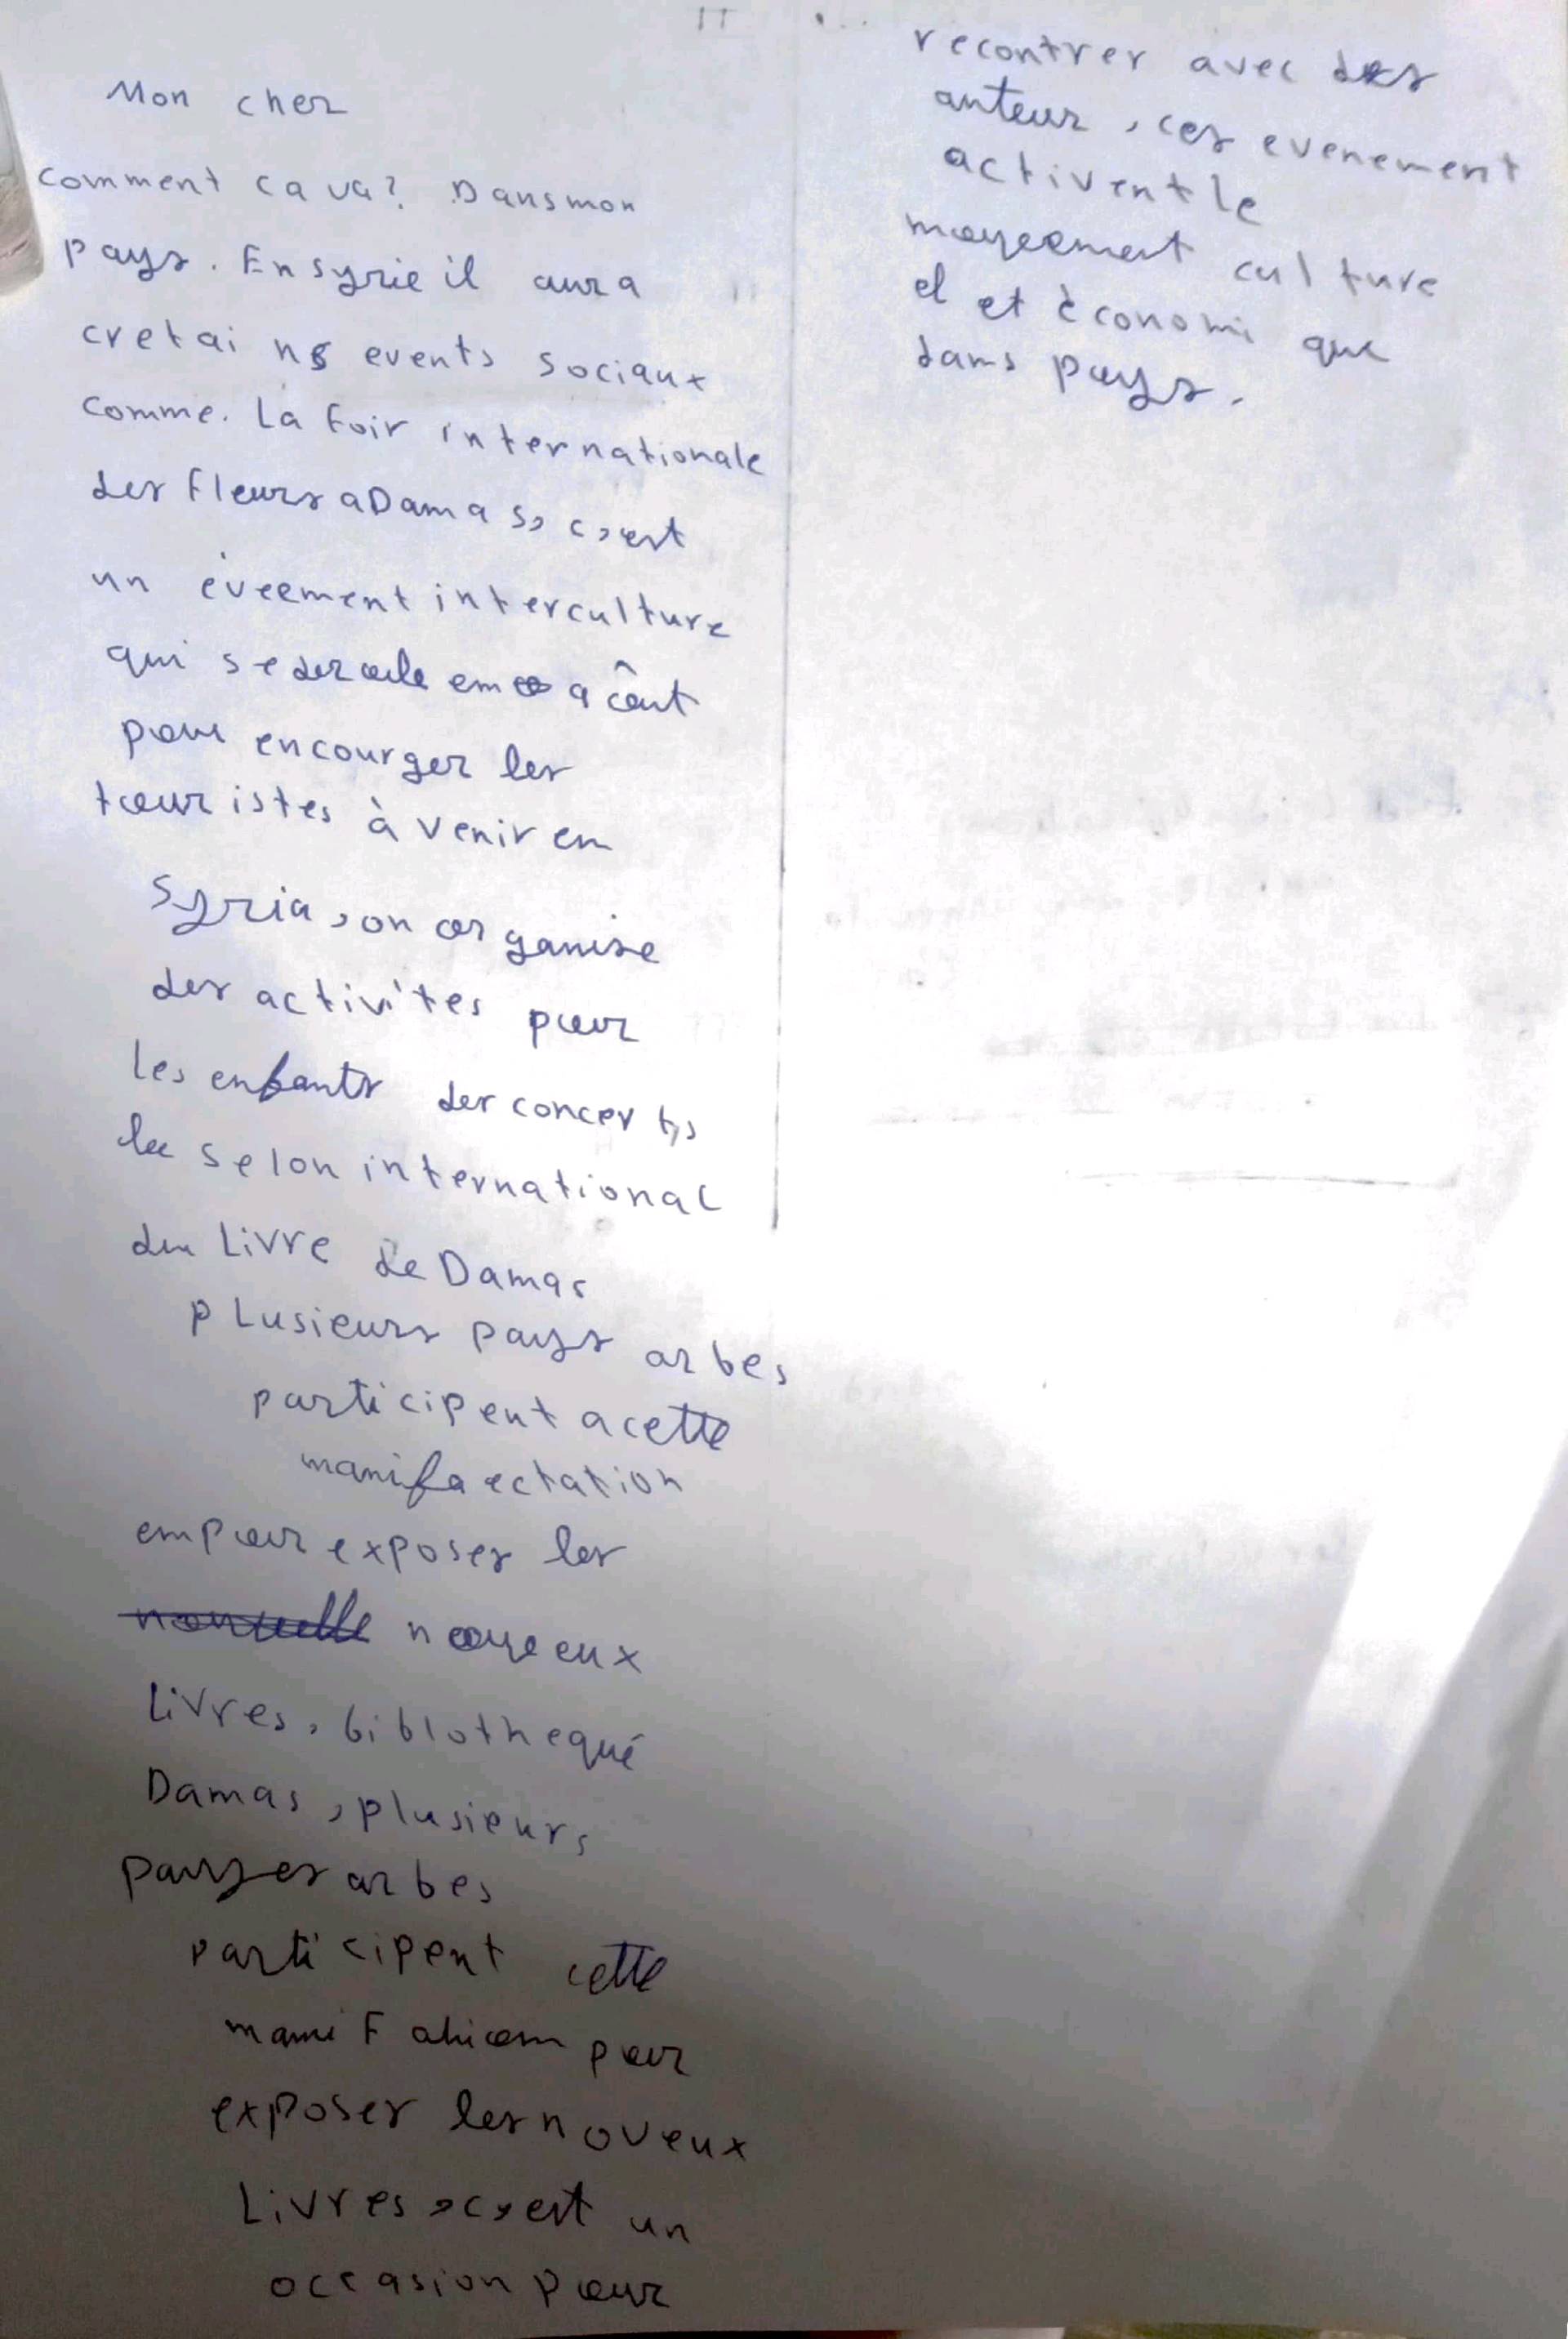 Mon cher
comment ca va? Dans mon
pays. En syrie il aura
cretains events sociaux
comme. La foir internationale
des fleurs a Damas, c,est
un éveement interculture
qui se deroule em a côut
pour encourger les
touristes à venir en
Syria, on organise
des activites pour
les enfants des concerts,
le selon international
du Livre de Damas
plusieurs pays arbes
participent a cette
manifaectation
em pour exposer les
nouveeux
Livres, biblothequé
Damas, plusieurs
payses arbes
participent cette
pour
exposer les noveux
Livres, c,est un
occasion pour
recontrer avec des
auteur, ces evenement
activent le
mouvement culture
el et èconomique
dans pays.